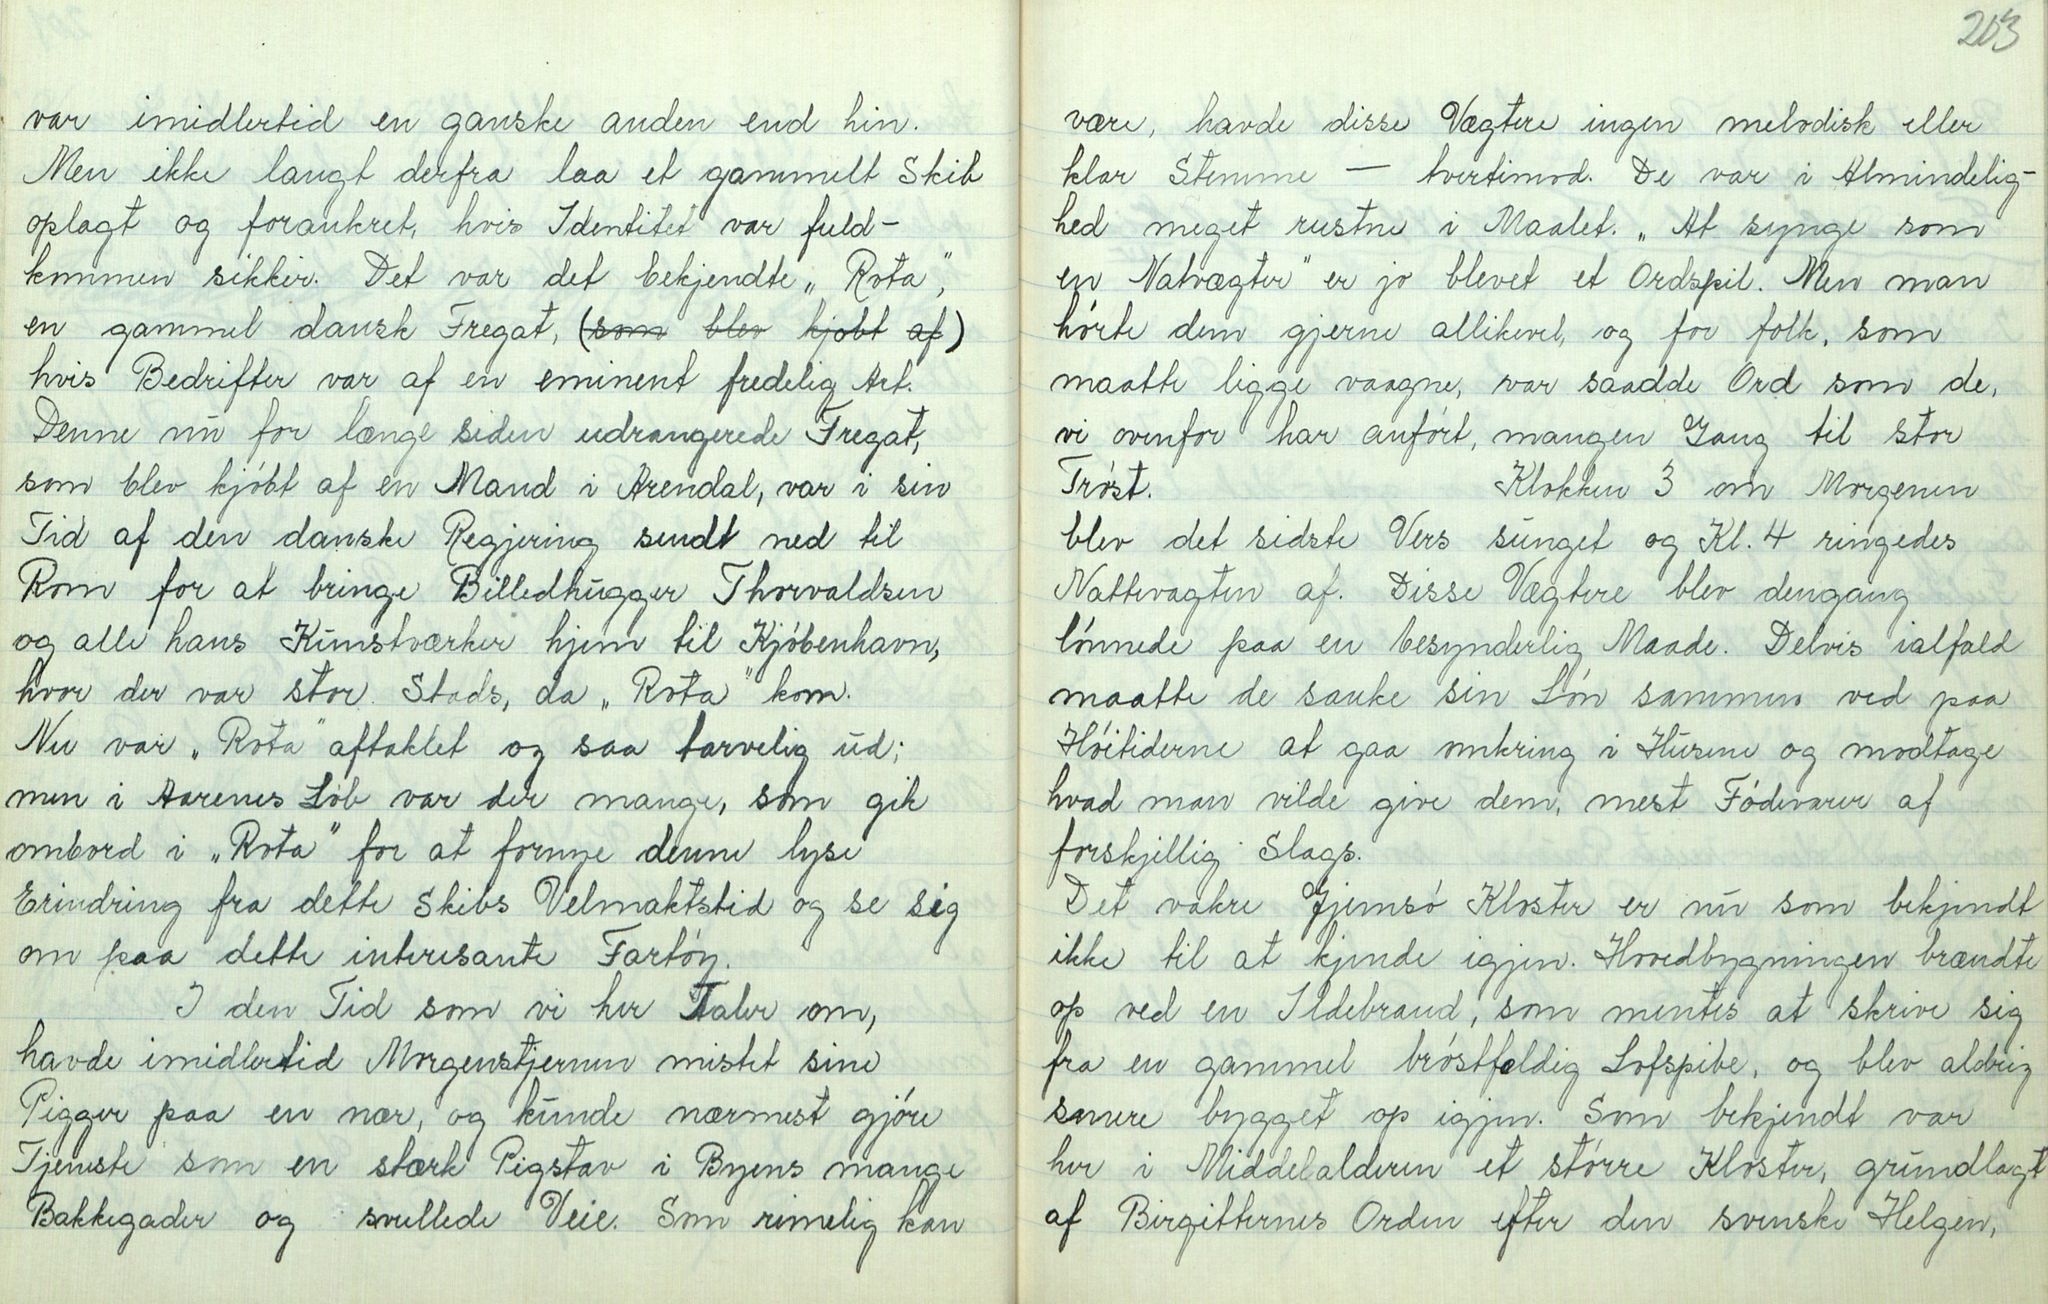 var imidlertid en ganske anden end hin.
Men ikke langt derfra laa et gammelt Skib
oplagt og forankret, hvis Identitet var fuld-
kommen sikker. Det var det bekjendte „Rota",
en gammel dansk Fregat, (som blev kjøbt af)
hvis Bedrifter var af en eminent fredelig Art.
Denne nu for længe siden udrangerede Fregat,
som blev kjóbt af en Mand i Arendal, var i sin
Tid af den danske Regjering sendt ned til
Rom for at bringe Billedhugger Thorvaldsen
og alle hans Kunstværker hjem til Kjóbenhavn,
hvor der var stor Stads, da „Rota" kom.
Nu var „Rota" aftaklet og saa tarvelig ud;
men i Aarenes Løb var der mange, som gik
ombord i „Rota" for at fornye denne lyse
Erindring fra dette Skibs Velmaktstid og se sig
om paa dette interesante Fartóy.
I den Tid som vi her Taler om,
havde imidlertid Morgenstjernen mistet sine
Pigger paa en nær, og kunde nærmest gjóre
Tjeneste som en stærk Pigstav i Byens mange
Bakkegader og svullede Veie. Som rimelig kan
203
være, havde disse Vægtere ingen melodisk eller
klar Stemme — tvertimod. De var i Almindelig-
hed meget rustne i Maalet. „At synge som
en Natvægter" er jo blevet et Ordspil. Men man
hórte dem gjerne allikevel, og for folk, som
maatte ligge vaagne, var saadde Ord som de,
vi ovenfor har anfórt, mangen Gang til stor
Tróst. Klokken 3 om Morgenen
blev det sidste Vers sunget og Kl. 4 ringedes
Nattevagten af. Disse Vægtere blev dengang
lónnede paa en besynderlig Maade. Delvis ialfald
maatte de sanke sin Lón sammen ved paa
Hóitiderne at gaa omkring i Husene og modtage
hvad man vilde give dem, mest Fódevarer af
forskjellig Slags.
Det vakre Gjemsó Kloster er nu som bekjendt
ikke til at kjende igjen. Hovedbygningen brændte
op ved en Ildebrand, som mentes at skrive sig
fra en gammel bróstfeldig Lofspibe, og blev aldrig
senere bygget op igjen. Som bekjendt var
her i Middelalderen et stórre Kloster, grundlagt
af Birgitternes Orden efter den svenske Helgen,